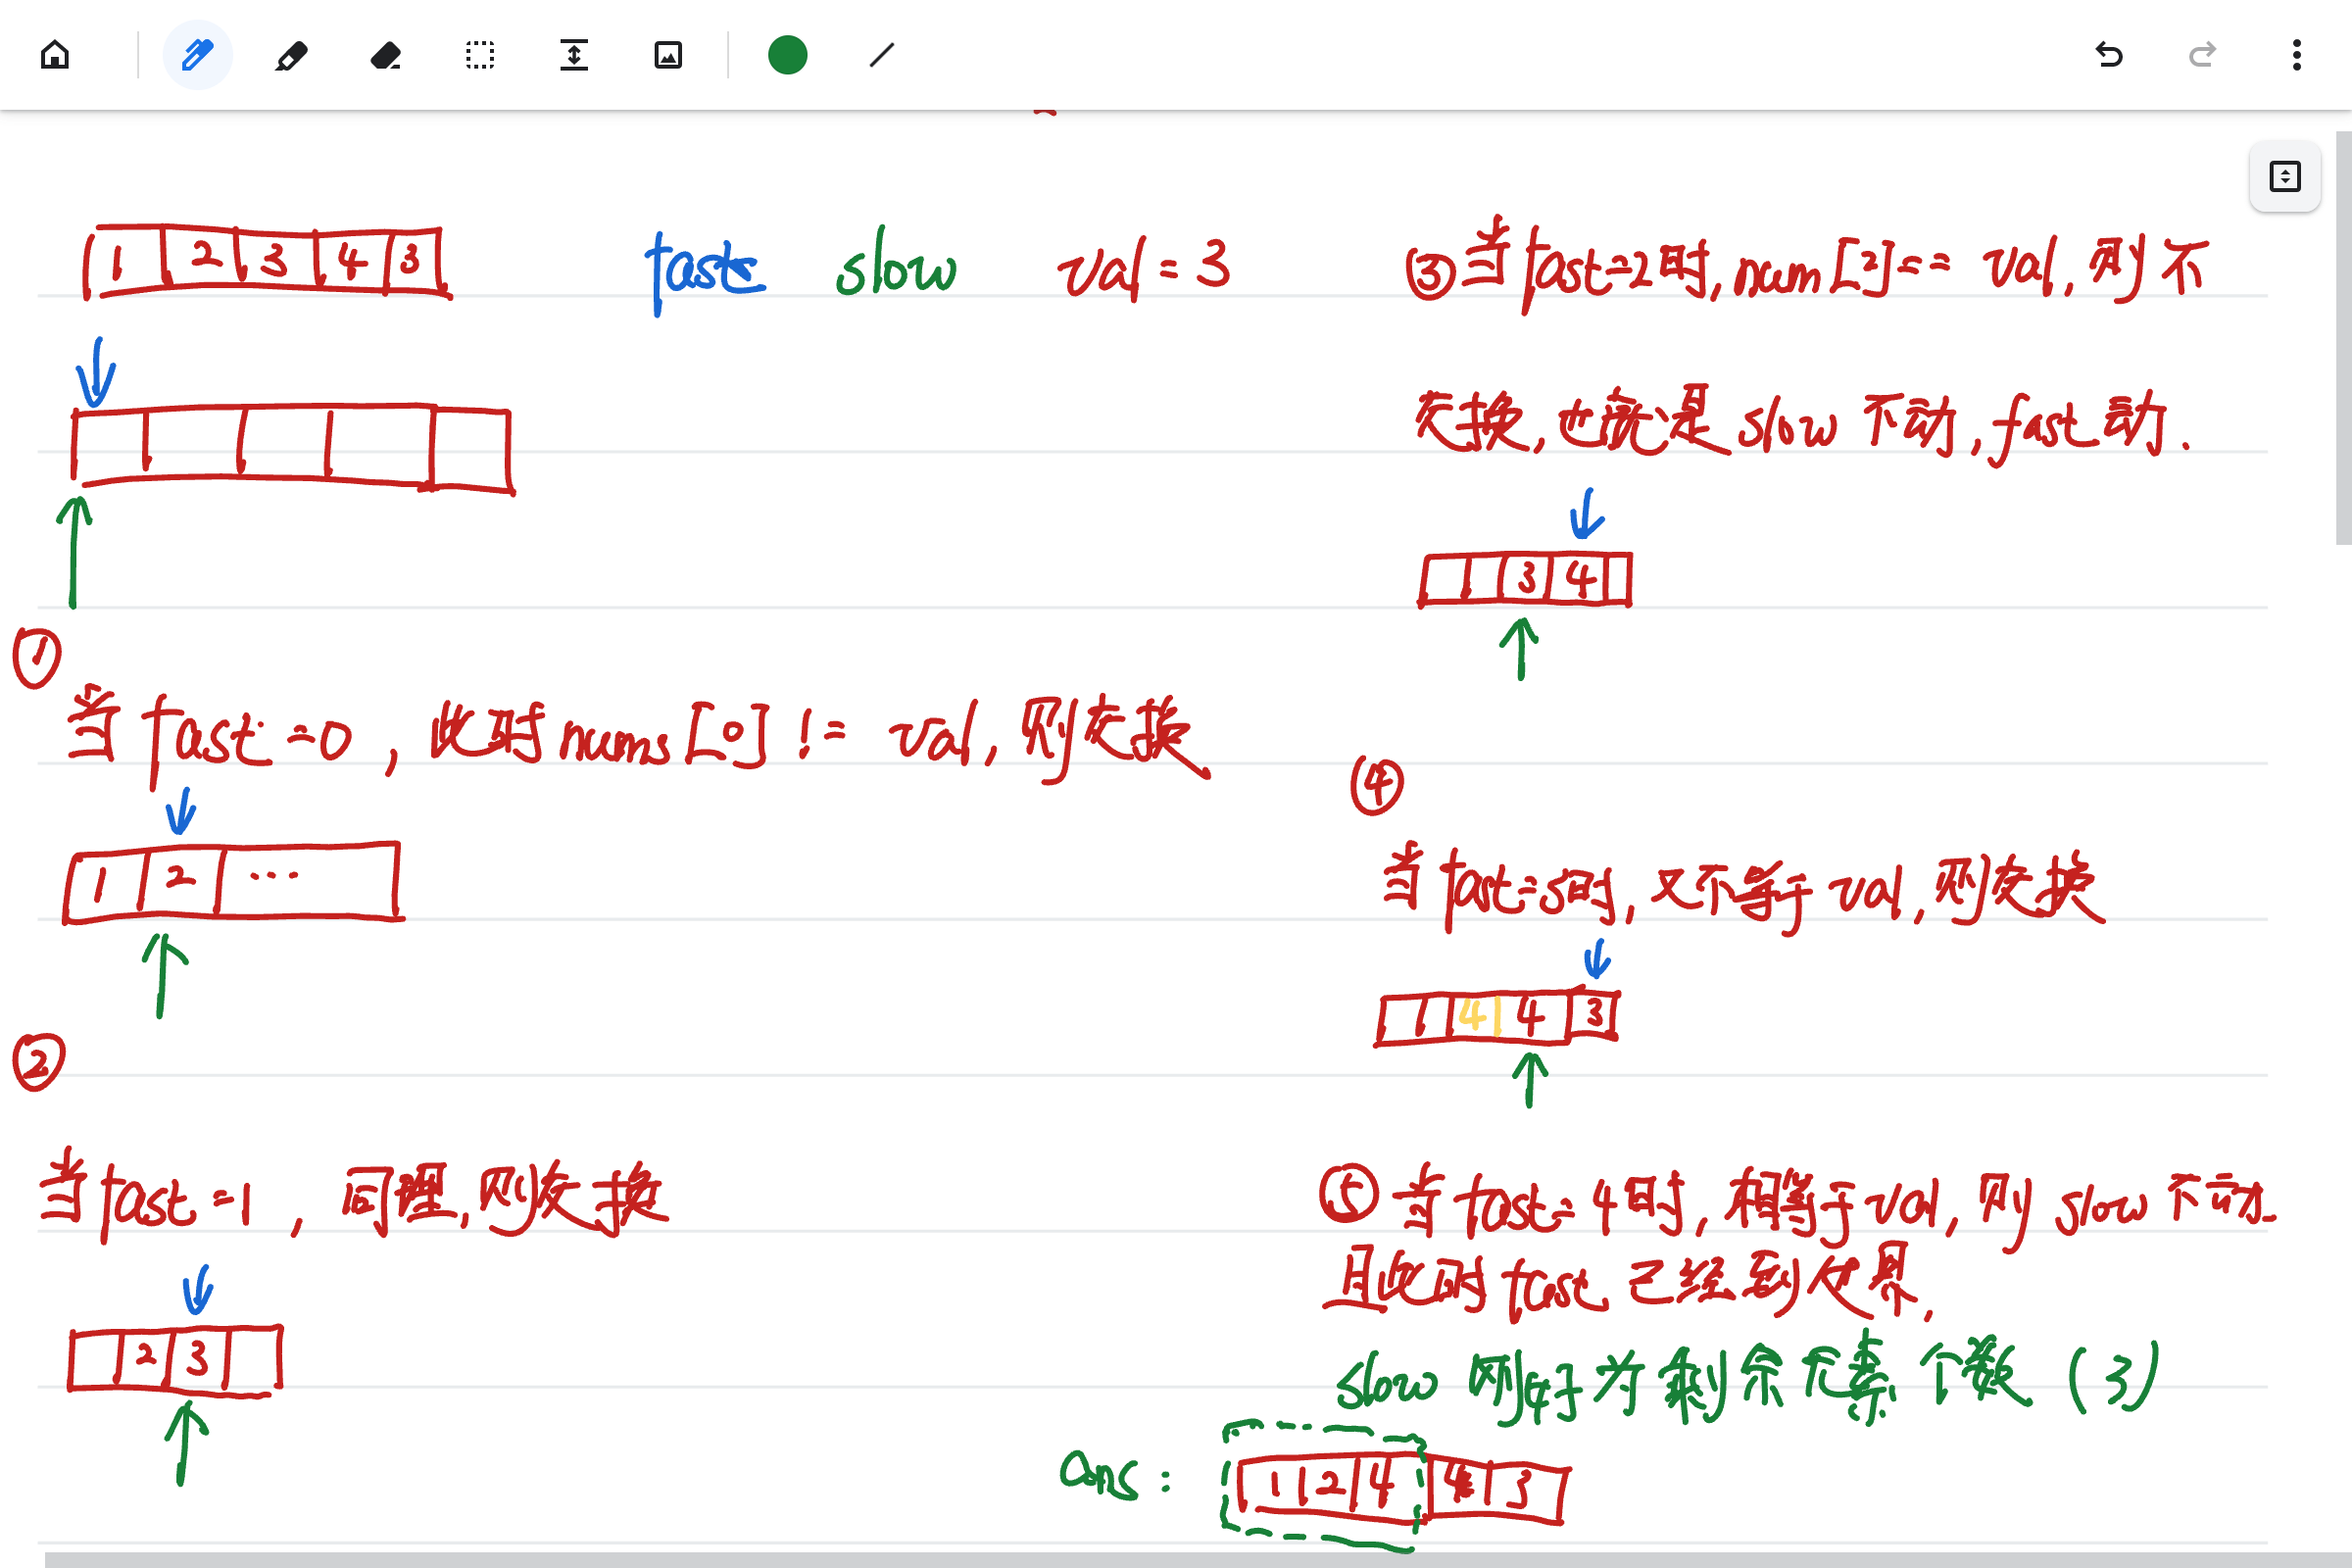 1 2 3 4 3
fast slow val=3
① 当fast=0, 此时nums[0] != val, 则交换
1 2 ...
② 当fast=1, 同理, 则交换
2 3
③当fast=2时, num[2]== val, 则不
交换, 也就是slow不动, fast动.
3 4
④
当fast=5时, 又不等于val, 则交换
4 4 3
⑤ 当fast=4时, 相当于val, 则slow不动
且此时fast已经到边界,
slow 刚好为剩余元素个数 (3)
ans: 1 2 4 4 3